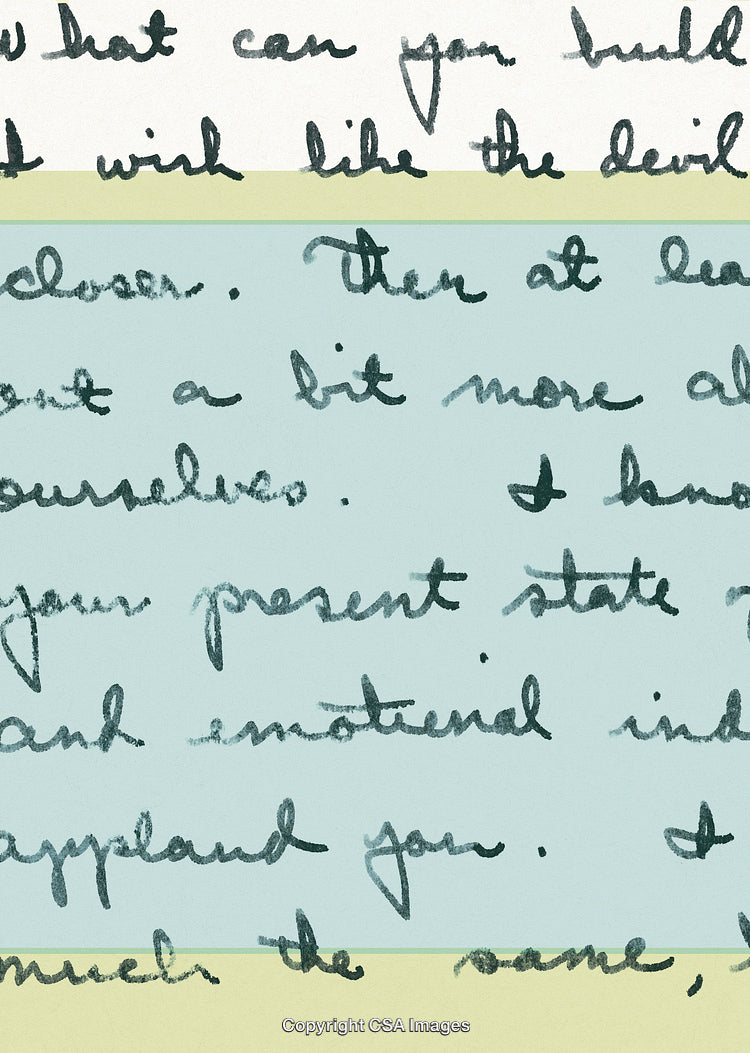 What can you build
I wish like the devil
closer. Then at lea
out a bit more al
ourselves. I kno
your present state
and emotional ind
appland you. I
much the same,
Copyright CSA Images